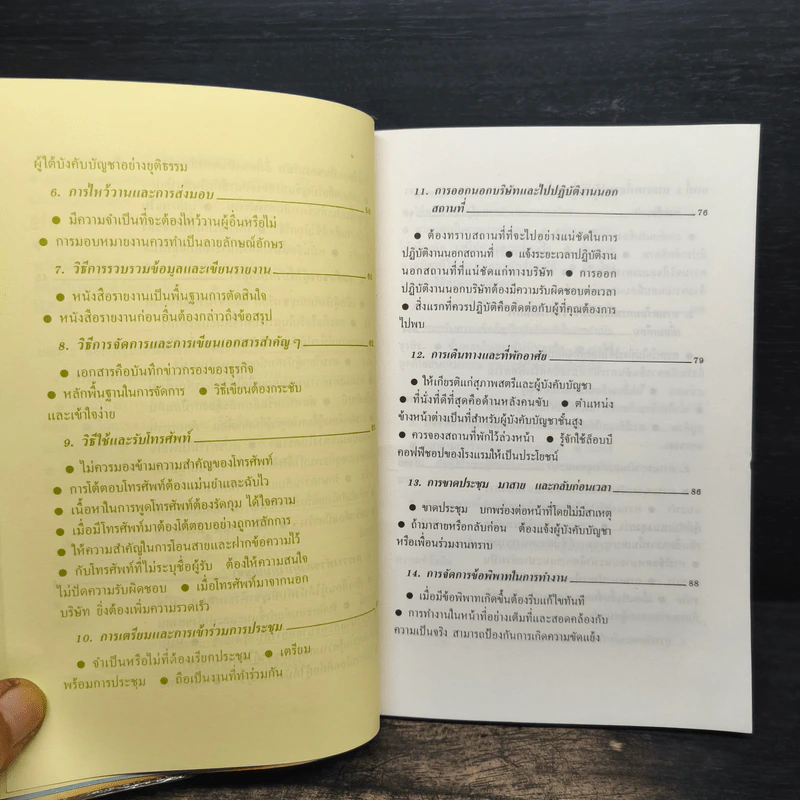 ผู้ใต้บังคับบัญชาอย่างยุติธรรม
6. การไหว้วานและการส่งมอบ
● มีความจำเป็นที่จะต้องไหว้วานผู้อื่นหรือไม่
● การมอบหมายงานควรทำเป็นลายลักษณ์อักษร
7. วิธีการรวบรวมข้อมูลและเขียนรายงาน
● หนังสือรายงานเป็นพื้นฐานการตัดสินใจ
● หนังสือรายงานก่อนอื่นต้องกล่าวถึงข้อสรุป
8. วิธีการจัดการและการเขียนเอกสารสำคัญ ๆ
● เอกสารคือบันทึกข่าวกรองของธุรกิจ
● หลักพื้นฐานในการจัดการ ● วิธีเขียนต้องกระชับ
และเข้าใจง่าย
9. วิธีใช้และรับโทรศัพท์
● ไม่ควรมองข้ามความสำคัญของโทรศัพท์
● การโต้ตอบโทรศัพท์ต้องแม่นยำและฉับไว
● เนื้อหาในการพูดโทรศัพท์ต้องรัดกุม ได้ใจความ
● เมื่อมีโทรศัพท์มาต้องโต้ตอบอย่างถูกหลักการ
● ให้ความสำคัญในการโอนสายและฝากข้อความไว้
● กับโทรศัพท์ที่ไม่ระบุชื่อผู้รับ ต้องให้ความสนใจ
ไม่ปัดความรับผิดชอบ ● เมื่อโทรศัพท์มาจากนอก
บริษัท ยิ่งต้องเพิ่มความรวดเร็ว
10. การเตรียมและการเข้าร่วมการประชุม
● จำเป็นหรือไม่ที่ต้องเรียกประชุม ● เตรียม
พร้อมการประชุม ● ถือเป็นงานที่ทำร่วมกัน
11. การออกนอกบริษัทและไปปฏิบัติงานนอก
สถานที่ 76
● ต้องทราบสถานที่ที่จะไปอย่างแน่ชัดในการ
ปฏิบัติงานนอกสถานที่ ● แจ้งระยะเวลาปฏิบัติงาน
นอกสถานที่ที่แน่ชัดแก่ทางบริษัท ● การออก
ปฏิบัติงานนอกบริษัทต้องมีความรับผิดชอบต่อเวลา
● สิ่งแรกที่ควรปฏิบัติคือติดต่อกับผู้ที่คุณต้องการ
ไปพบ
12. การเดินทางและที่พักอาศัย 79
● ให้เกียรติแก่สุภาพสตรีและผู้บังคับบัญชา
● ที่นั่งที่ดีที่สุดคือด้านหลังคนขับ ● ตำแหน่ง
ข้างหน้าต่างเป็นที่สำหรับผู้บังคับบัญชาชั้นสูง
● ควรจองสถานที่พักไว้ล่วงหน้า ● รู้จักใช้ล็อบบี้
คอฟฟี่ชอปของโรงแรมให้เป็นประโยชน์
13. การขาดประชุม มาสาย และกลับก่อนเวลา 86
● ขาดประชุม บกพร่องต่อหน้าที่โดยไม่มีสาเหตุ
● ถ้ามาสายหรือกลับก่อน ต้องแจ้งผู้บังคับบัญชา
หรือเพื่อนร่วมงานทราบ
14. การจัดการข้อพิพาทในการทำงาน 88
● เมื่อมีข้อพิพาทเกิดขึ้นต้องรีบแก้ไขทันที
● การทำงานในหน้าที่อย่างเต็มที่และสอดคล้องกับ
ความเป็นจริง สามารถป้องกันการเกิดความขัดแย้ง